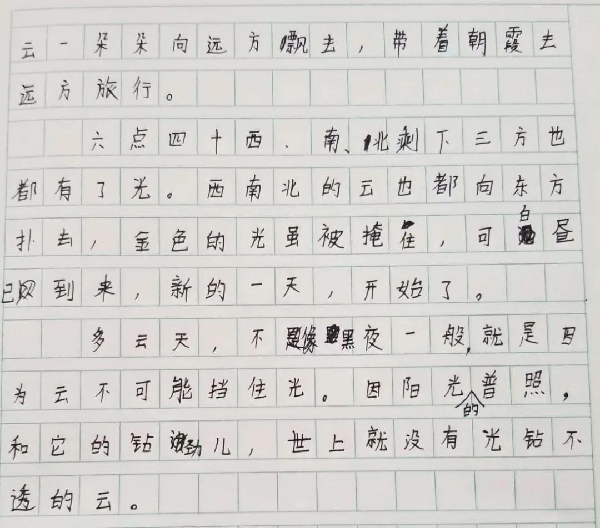 云一朵朵向远方飘去，带着朝霞去
远方旅行。
六点四十西、南、北剩下三方也
都有了光。西南北的云也都向东方
扑去，金色的光虽被掩住，可白昼
已到来，新的一天，开始了。
多云天，不像黑夜一般，就是因
为云不可能挡住光。因阳光的普照，
和它的钻劲儿，世上就没有光钻不
透的云。